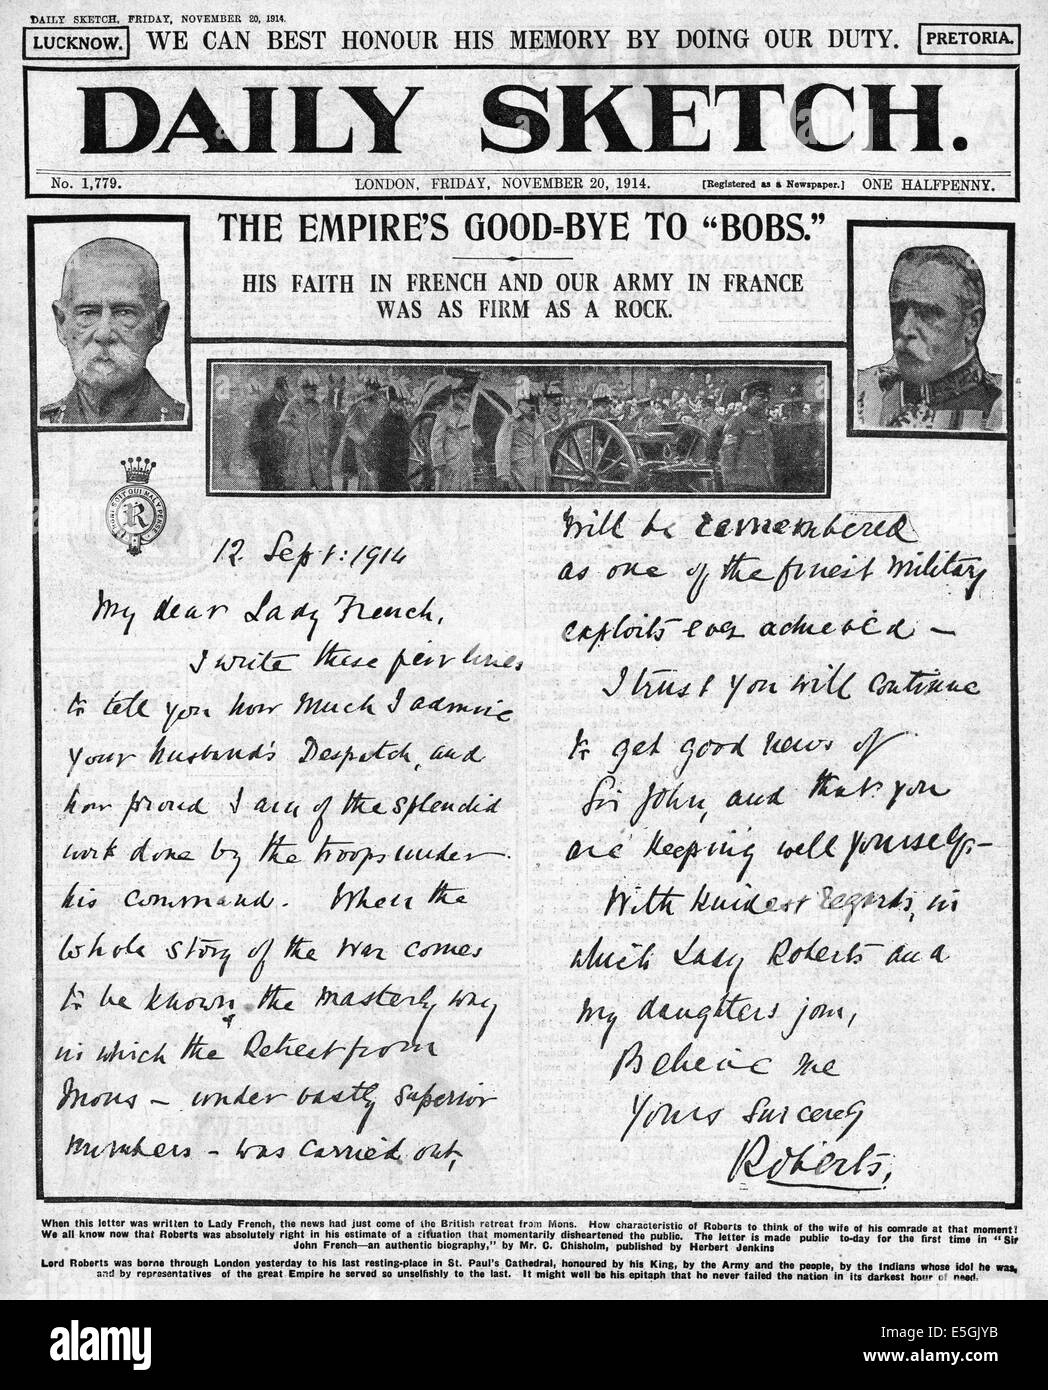 DAILY SKETCH, FRIDAY, NOVEMBER 20, 1914.
LUCKNOW. WE CAN BEST HONOUR HIS MEMORY BY DOING OUR DUTY. PRETORIA.
DAILY SKETCH.
No. 1,779. LONDON, FRIDAY, NOVEMBER 20, 1914. [Registered as a Newspaper.] ONE HALFPENNY.
THE EMPIRE'S GOOD=BYE TO "BOBS."
HIS FAITH IN FRENCH AND OUR ARMY IN FRANCE
WAS AS FIRM AS A ROCK.
HONI SOIT QUI MAL Y PENSE
R
12. Sept: 1914
My dear Lady French,
I write these few lines
to tell you how much I admire
your husband's Despatch, and
how proud I am of the splendid
work done by the troops under
his command. When the
whole story of the war comes
to be known, the masterly way
in which the Retreat from
Mons – under vastly superior
numbers – was carried out,
will be remembered
as one of the finest military
exploits ever achieved –
I trust you will continue
to get good news of
Sir John, and that you
are keeping well yourself –
With kindest regards, in
which Lady Roberts and
my daughters join,
Believe me
Yours sincerely
Roberts.
When this letter was written to Lady French, the news had just come of the British retreat from Mons. How characteristic of Roberts to think of the wife of his comrade at that moment!
We all know now that Roberts was absolutely right in his estimate of a situation that momentarily disheartened the public. The letter is made public to-day for the first time in "Sir
John French—an authentic biography," by Mr. C. Chisholm, published by Herbert Jenkins
Lord Roberts was borne through London yesterday to his last resting-place in St. Paul's Cathedral, honoured by his King, by the Army and the people, by the Indians whose idol he was,
and by representatives of the great Empire he served so unselfishly to the last. It might well be his epitaph that he never failed the nation in its darkest hour of need.
alamy stock photo
E5GJYB
www.alamy.com